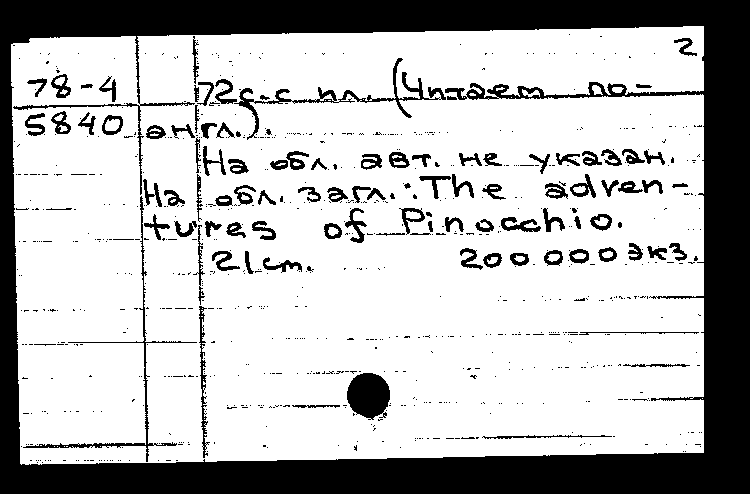 2
78-4 72с. с ил. (Читаем по-
5840 англ.).
На обл. авт. не указан.
На обл. загл.: The adven-
tures of Pinocchio.
21см. 200 000 экз.